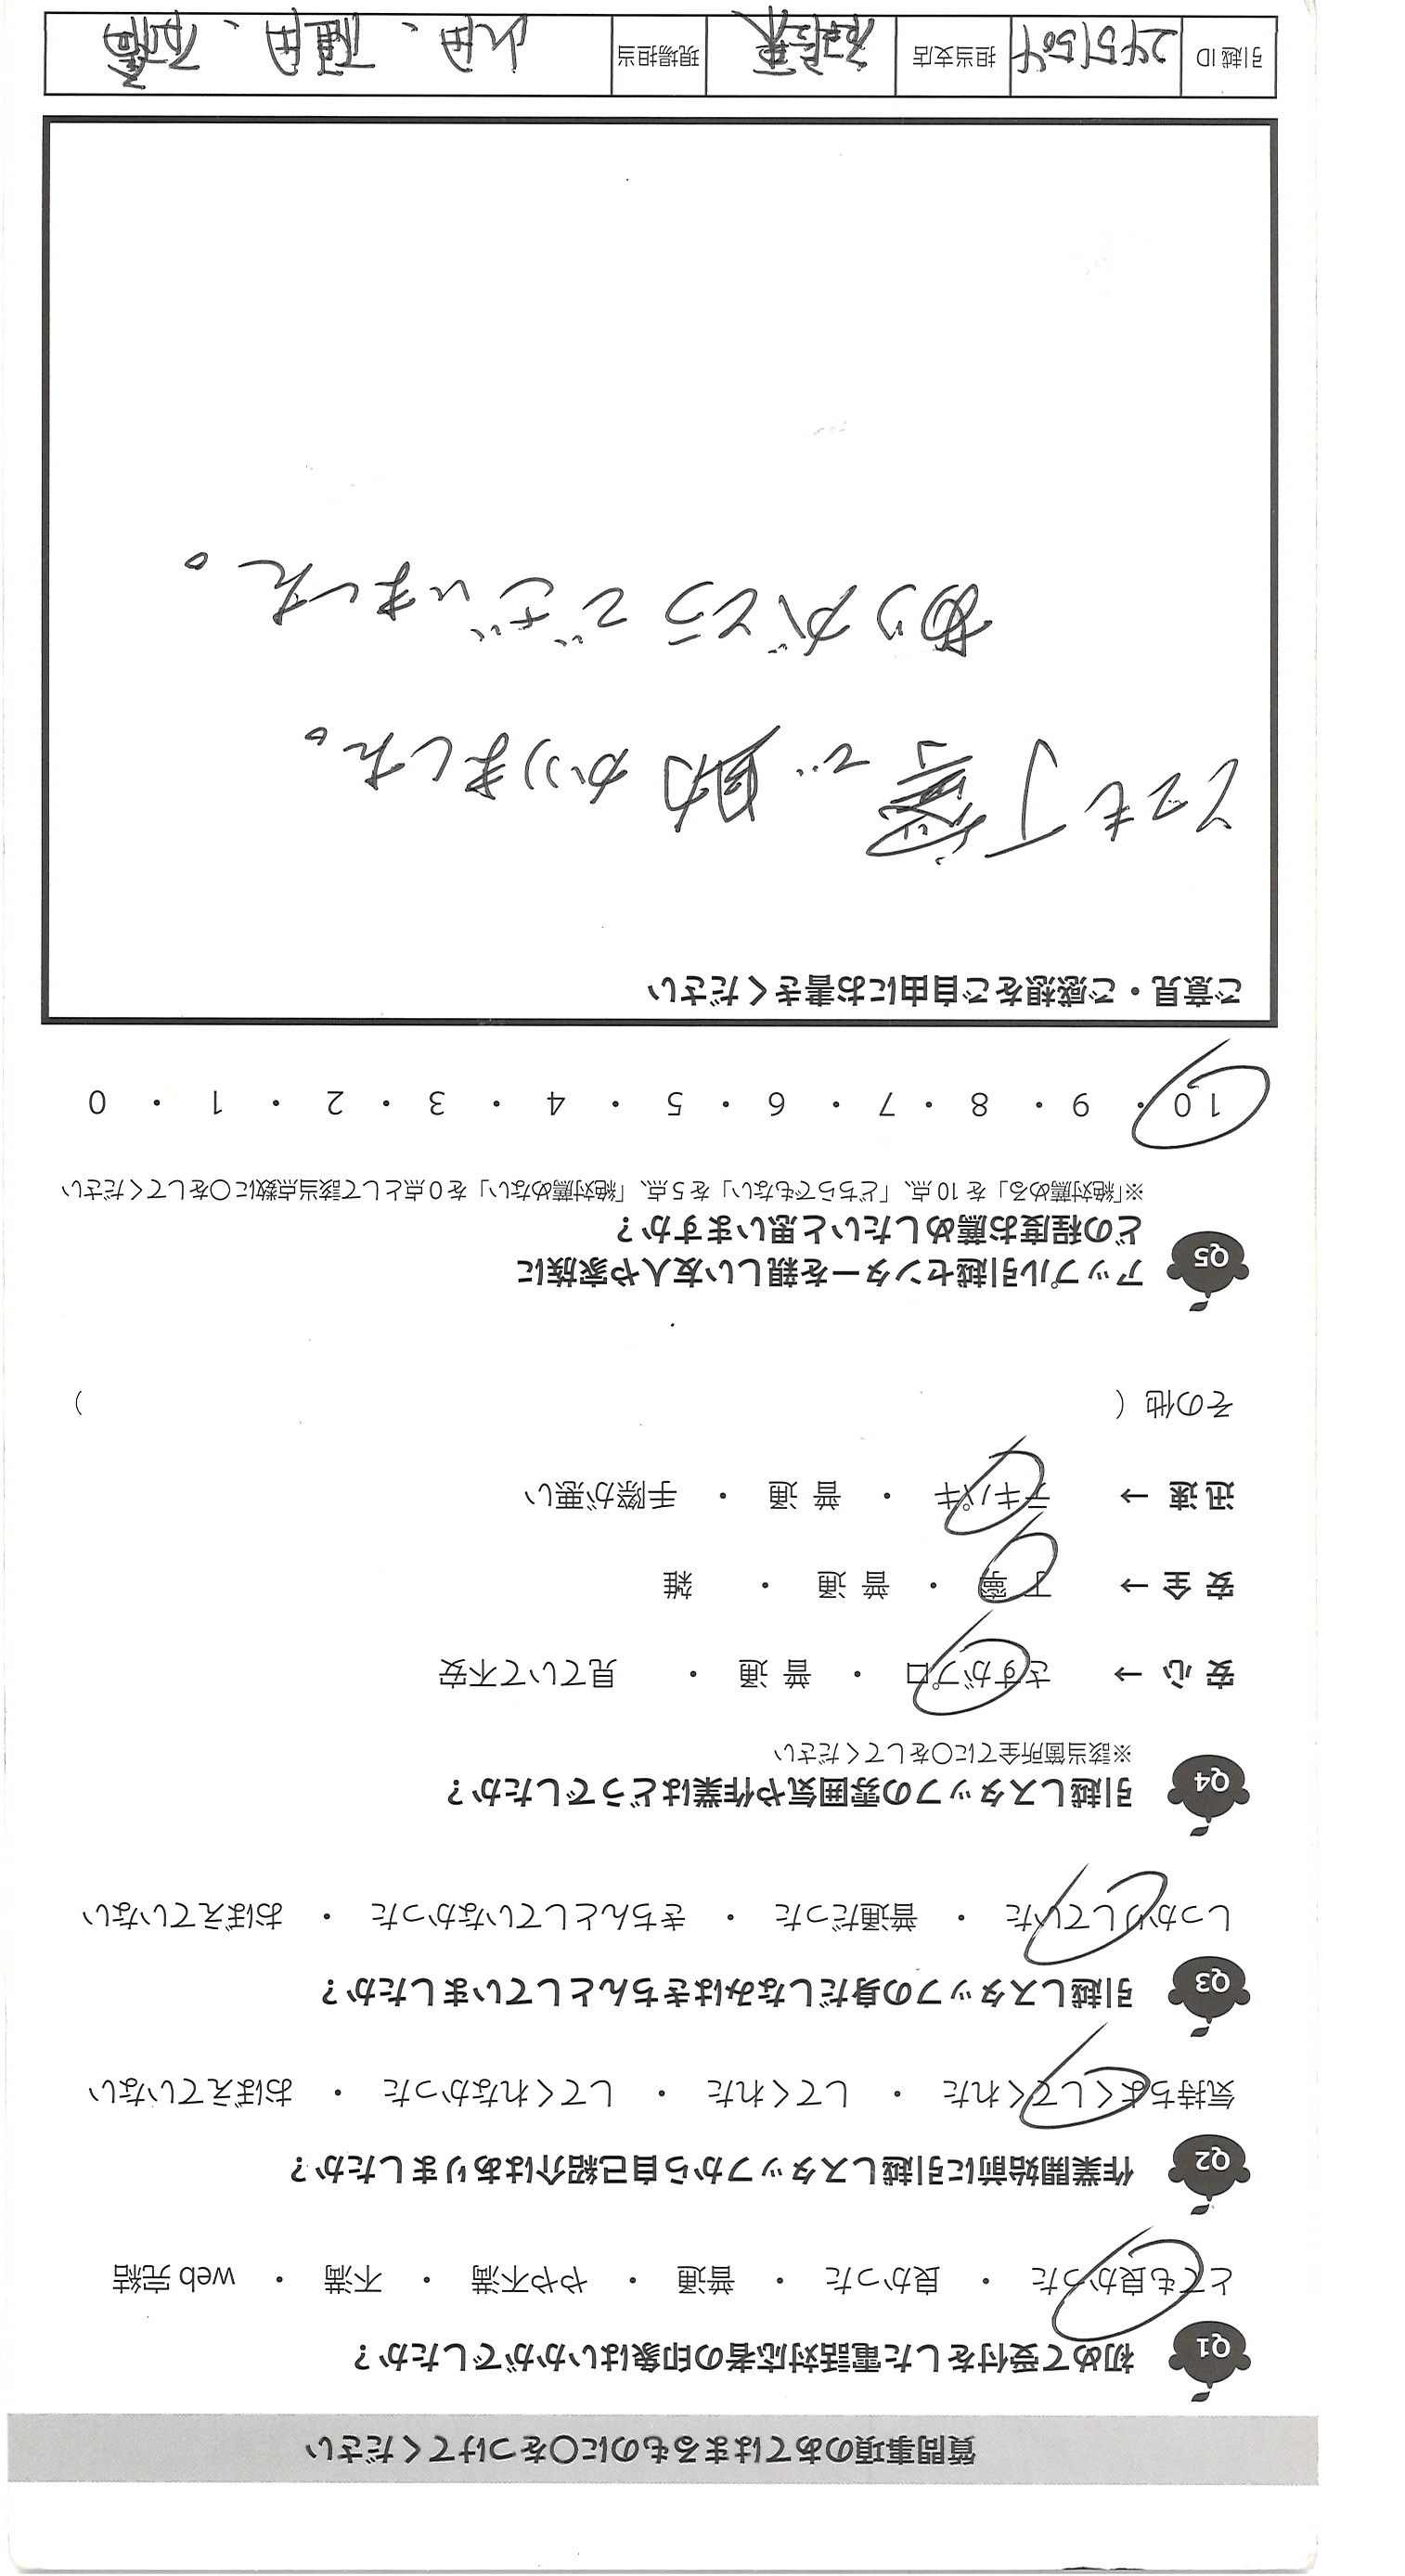 質問事項のあてはまるものに〇をつけてください
Q1 初めて受付をした電話対応者の印象はいかがでしたか？
とても良かった ・ 良かった ・ 普通 ・ やや不満 ・ 不満 ・ web 完結
Q2 作業開始前に引越しスタッフから自己紹介はありましたか？
気持ちよくしてくれた ・ してくれた ・ してくれなかった ・ おぼえていない
Q3 引越しスタッフの身だしなみはきちんとしていましたか？
しっかりしていた ・ 普通だった ・ きちんとしていなかった ・ おぼえていない
Q4 引越しスタッフの雰囲気や作業はどうでしたか？
※該当箇所全てに〇をしてください
安心 → さすがプロ ・ 普通 ・ 見ていて不安
安全 → 丁寧 ・ 普通 ・ 雑
迅速 → テキパキ ・ 普通 ・ 手際が悪い
その他（ ）
Q5 アップル引越センターを親しい友人や家族に
どの程度お薦めしたいと思いますか？
※「絶対薦める」を 10 点、「どちらでもない」を 5 点、「絶対薦めない」を 0 点として該当点数に〇をしてください
10 ・ 9 ・ 8 ・ 7 ・ 6 ・ 5 ・ 4 ・ 3 ・ 2 ・ 1 ・ 0
ご意見・ご感想をご自由にお書きください
とても丁寧で助かりました。
ありがとうございました。
引越 ID 2451504 担当支店 現場担当